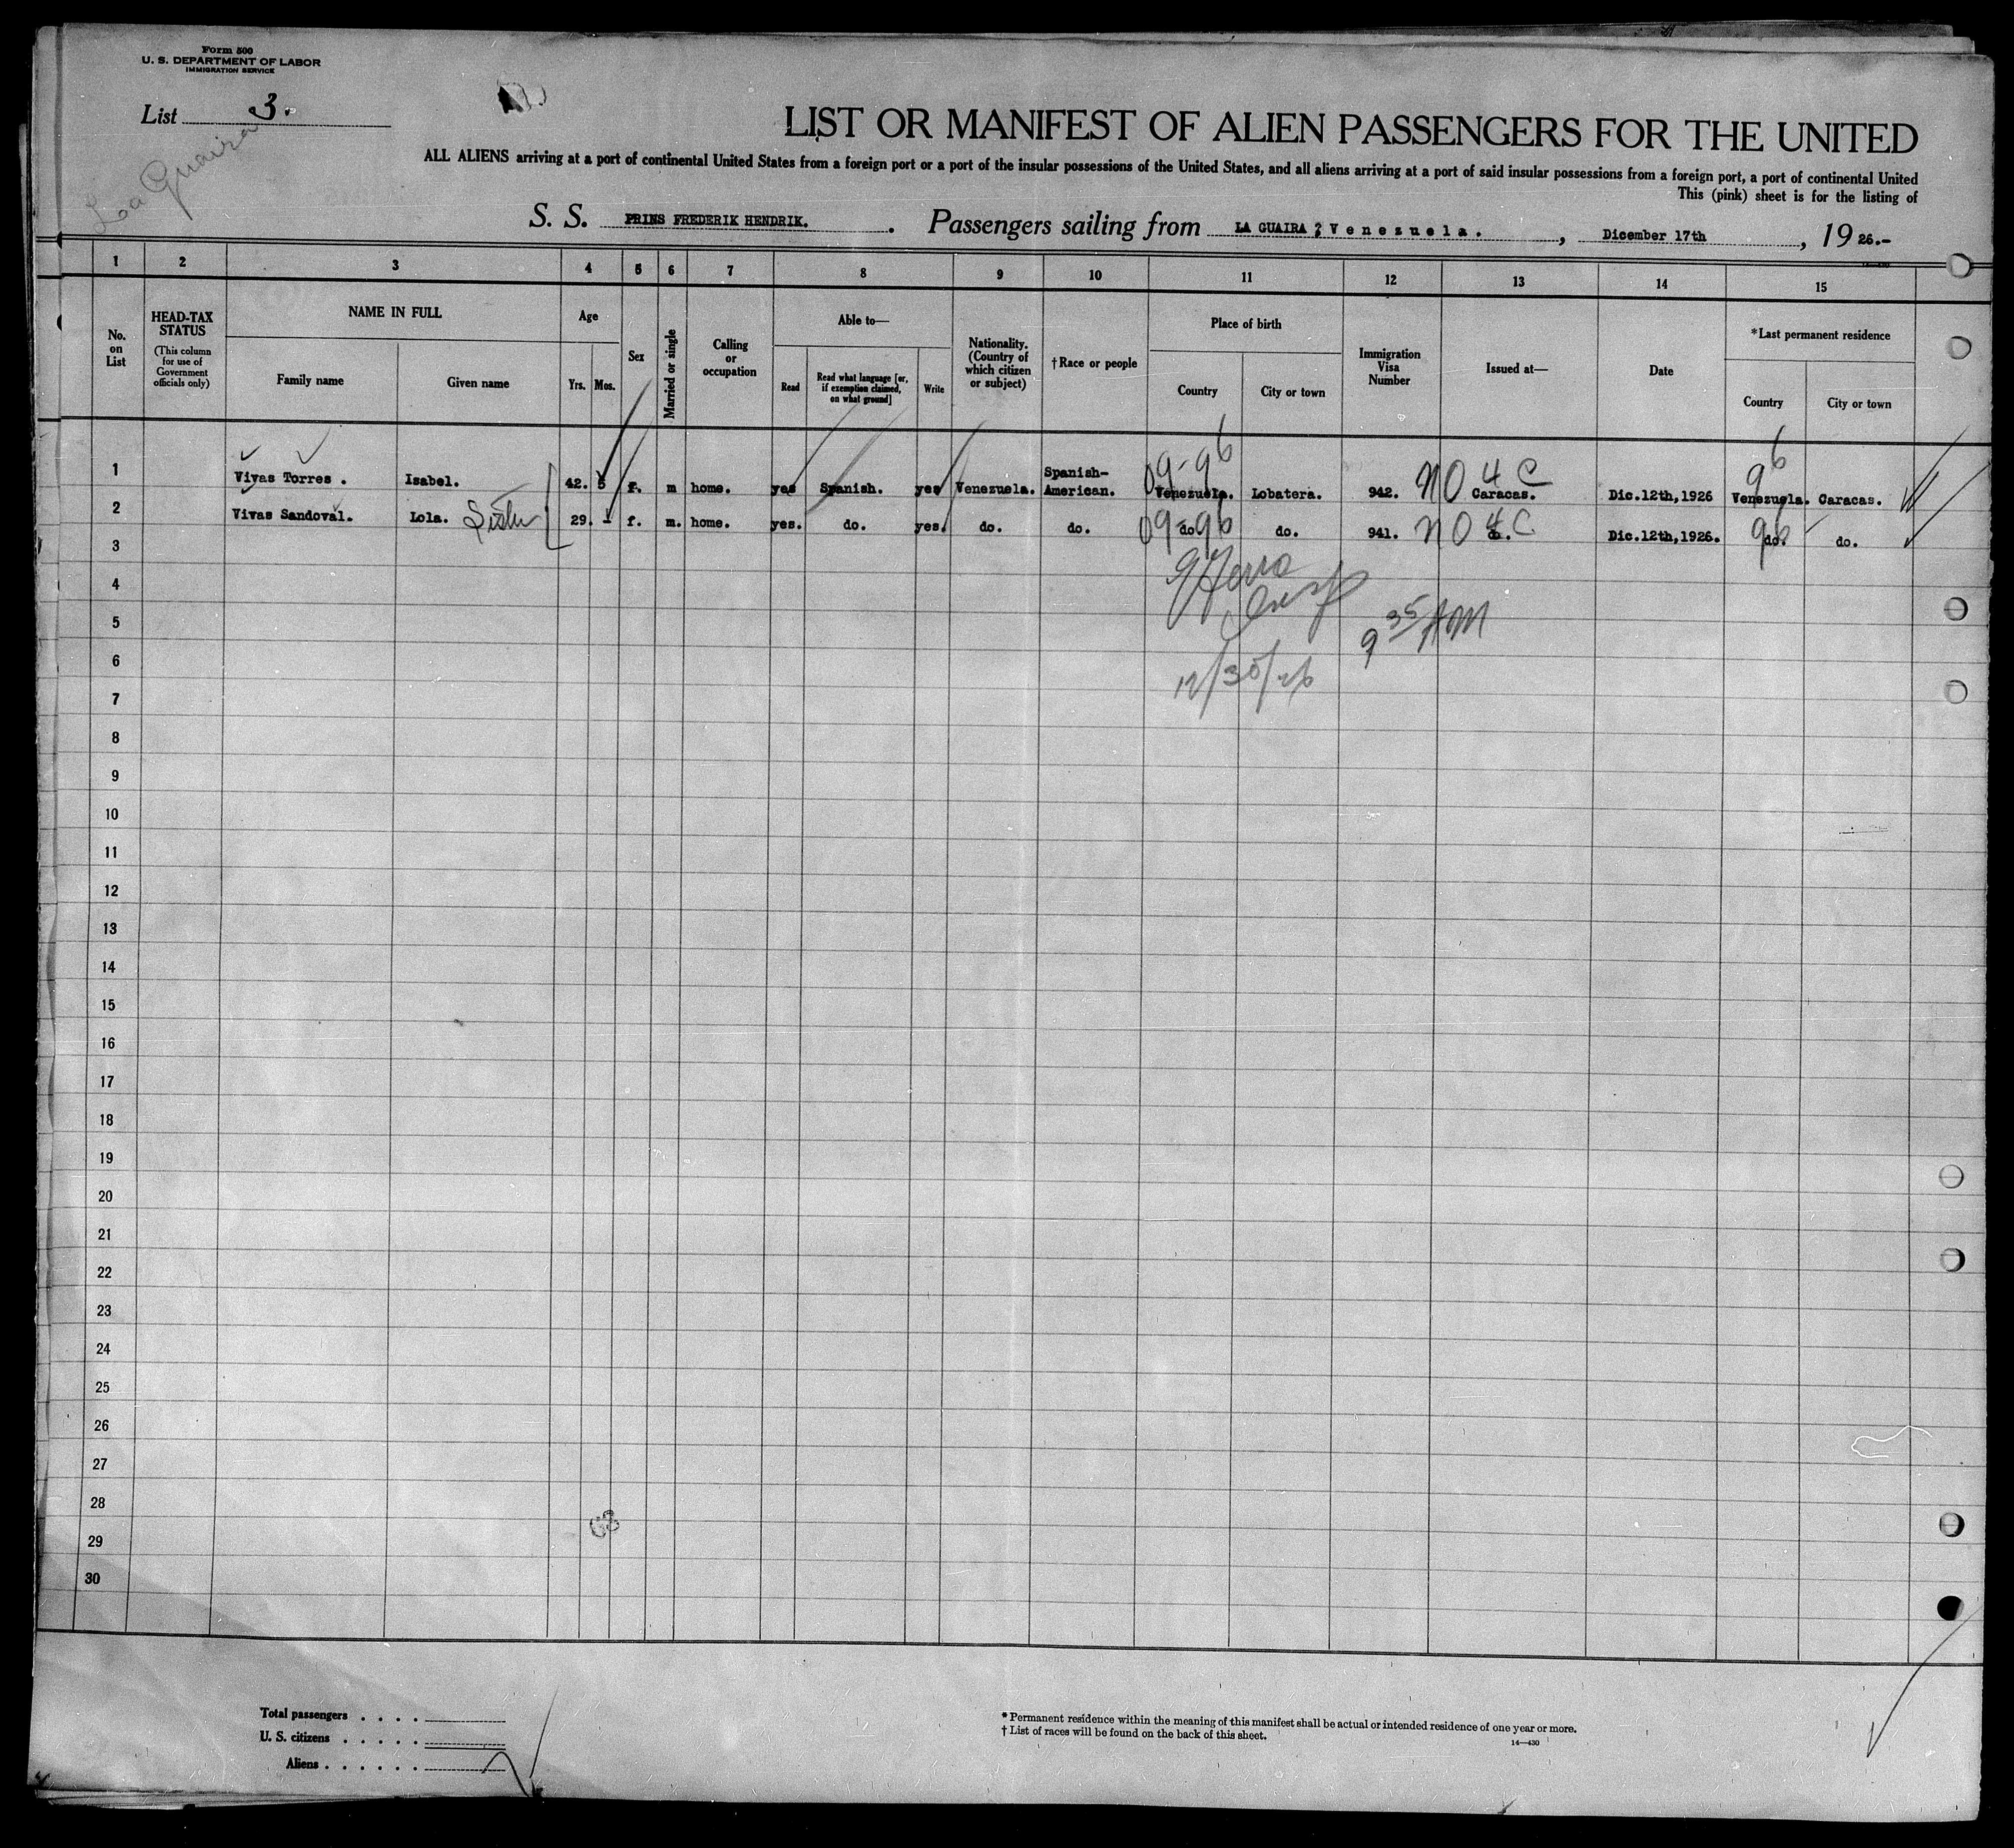 Form 500
U. S. DEPARTMENT OF LABOR
IMMIGRATION SERVICE
List 3.
La Guaira
LIST OR MANIFEST OF ALIEN PASSENGERS FOR THE UNITED
ALL ALIENS arriving at a port of continental United States from a foreign port or a port of the insular possessions of the United States, and all aliens arriving at a port of said insular possessions from a foreign port, a port of continental United
This (pink) sheet is for the listing of
S. S. PRINS FREDERIK HENDRIK. Passengers sailing from LA GUAIRA ; Venezuela. , Dicember 17th , 19 26.-
1 2 3 4 5 6 7 8 9 10 11 12 13 14 15
No. on List
HEAD-TAX STATUS
(This column for use of Government officials only)
NAME IN FULL
Family name Given name
Age
Yrs. Mos.
Sex
Married or single
Calling or occupation
Able to—
Read
Read what language [or, if exemption claimed, on what ground]
Write
Nationality. (Country of which citizen or subject)
†Race or people
Place of birth
Country City or town
Immigration Visa Number
Issued at—
Date
*Last permanent residence
Country City or town
09-96 96
1 Vivas Torres . Isabel. 42. 5 f. m home. yes Spanish. yes Venezuela. Spanish-American. Venezuela. Lobatera. 942. NO 4 C Caracas. Dic.12th,1926 Venezuela. Caracas.
2 Vivas Sandoval. Lola. Sister 29. - f. m. home. yes. do. yes. do. do. 09-96 do. do. 941. NO 4 C do. Dic.12th,1926. 96 do. do.
3
4
5
9 35 AM
6
12/30/26
7
8
9
10
11
12
13
14
15
16
17
18
19
20
21
22
23
24
25
26
27
28
68
29
30
Total passengers . . . .
U. S. citizens . . . . .
Aliens . . . . . .
* Permanent residence within the meaning of this manifest shall be actual or intended residence of one year or more.
† List of races will be found on the back of this sheet.
14—430